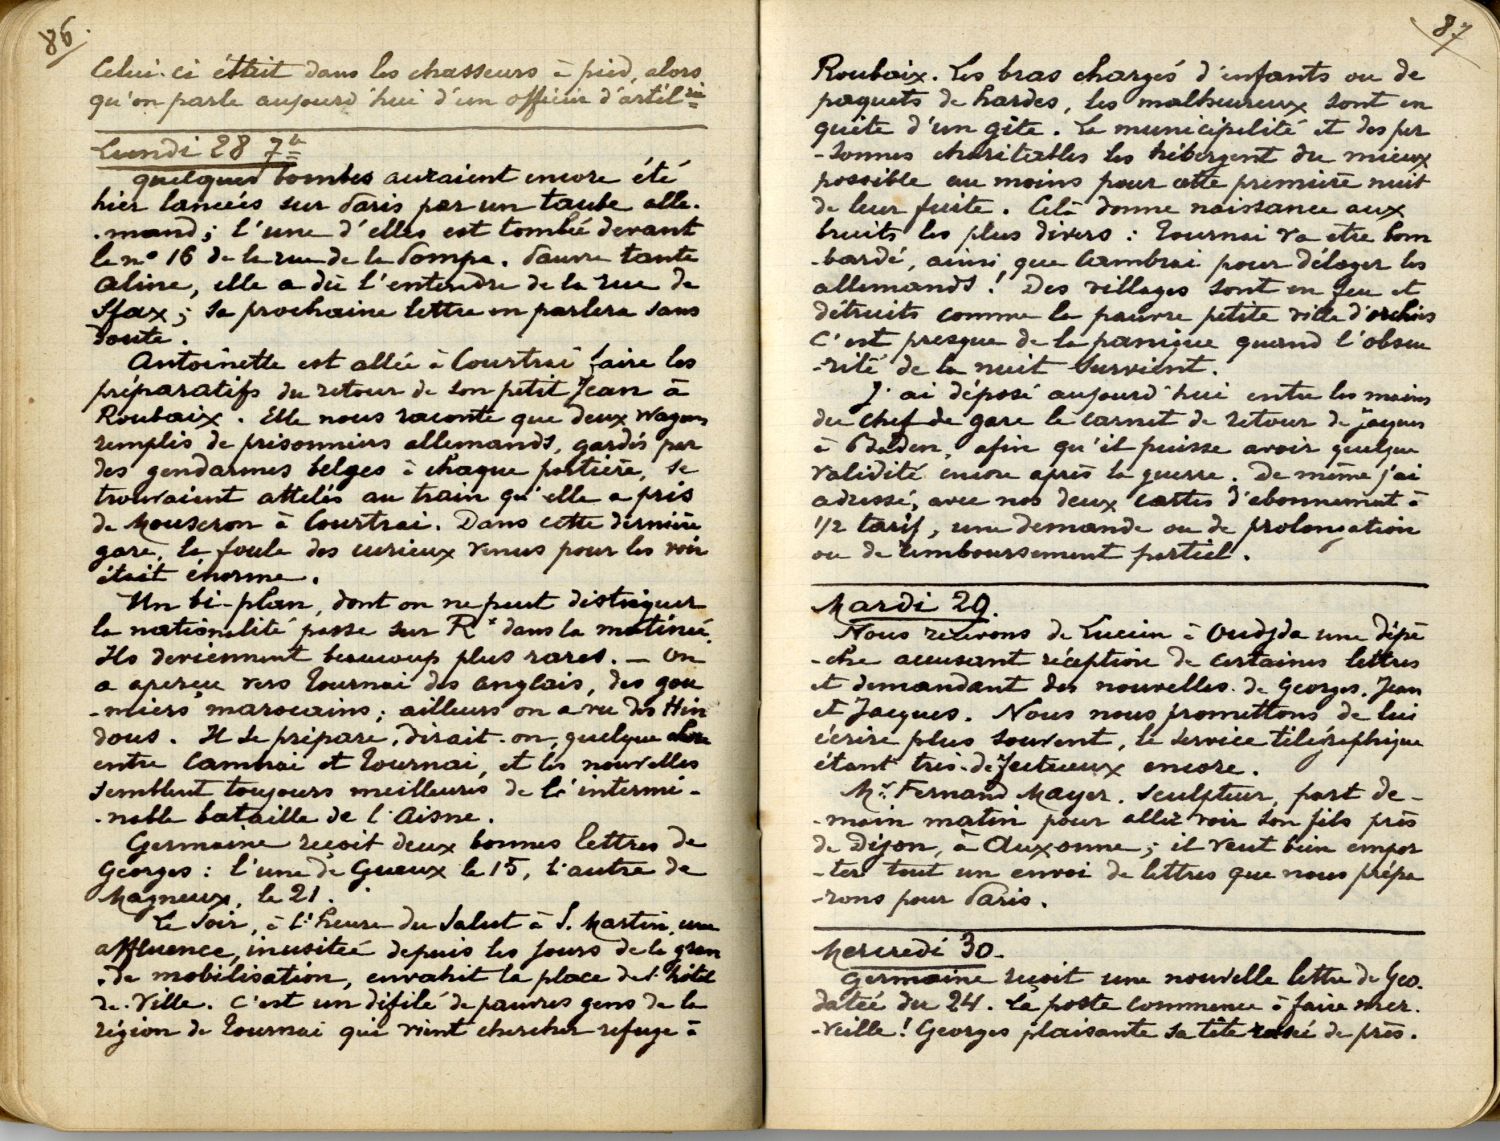 86.
Celui-ci était dans les chasseurs à pied, alors
qu'on parle aujourd'hui d'un officier d'artil^rie
Lundi 28 7^b
Quelques bombes auraient encore été
hier lancées sur Paris par un taube alle-
-mand; l'une d'elles est tombée devant
le n° 16 de la rue de la Pompe. Pauvre tante
Aline, elle a dû l'entendre de la rue de
Sfax; sa prochaine lettre en parlera sans
doute.
Antoinette est allée à Courtrai faire les
préparatifs du retour de son petit Jean à
Roubaix. Elle nous raconte que deux wagons
remplis de prisonniers allemands, gardés par
des gendarmes belges à chaque portière, se
trouvaient attelés au train qu'elle a pris
de Mouscron à Courtrai. Dans cette dernière
gare, la foule des curieux venus pour les voir
était énorme.
Un bi-plan, dont on ne peut distinguer
la nationalité passe sur R^x dans la matinée.
Ils deviennent beaucoup plus rares. — On
a aperçu vers Tournai des anglais, des gou
-miers marocains; ailleurs on a vu des Hin
dous. Il se prépare, dirait-on, quelque chose
entre Cambrai et Tournai, et les nouvelles
semblent toujours meilleures de l'intermi-
-nable bataille de l'Aisne.
Germaine reçoit deux bonnes lettres de
Georges: l'une de Gueux le 15, l'autre de
Magneux, le 21.
Le soir, à l'heure du Salut à S. Martin, une
affluence, inusitée depuis les jours de la gran
-de mobilisation, envahit la place de l'hôtel
de-Ville. C'est un défilé de pauvres gens de la
région de Tournai qui vient chercher refuge à
87
Roubaix. Les bras chargés d'enfants ou de
paquets de hardes, les malheureux sont en
quête d'un gîte. La municipalité et des per
-sonnes charitables les hébergent du mieux
possible au moins pour cette première nuit
de leur fuite. Celà donne naissance aux
bruits les plus divers: Tournai va être bom
-bardé, ainsi que Cambrai pour déloger les
allemands! Des villages sont en feu et
détruits comme la pauvre petite ville d'Orchies
C'est presque de la panique quand l'obscu
-rité de la nuit survient.
J'ai déposé aujourd'hui entre les mains
du chef de gare le carnet de retour de Jacques
à Baden, afin qu'il puisse avoir quelque
validité encore après la guerre. De même j'ai
adressé, avec nos deux cartes d'abonnement à
1/2 tarif, une demande ou de prolongation
ou de remboursement partiel.
Mardi 29.
Nous recevons de Lucien à Oudjda une dépê
-che accusant réception de certaines lettres
et demandant des nouvelles de Georges, Jean
et Jacques. Nous nous promettons de lui
écrire plus souvent, le service télégraphique
étant très-défectueux encore.
M^r. Fernand Mayer, sculpteur, part de-
-main matin pour aller voir son fils près
de Dijon, à Auxonne; il veut bien empor
-ter tout un envoi de lettres que nous prépa
-rons pour Paris.
Mercredi 30.
Germaine reçoit une nouvelle lettre de Geo.
datée du 24. La poste commence à faire mer.
-veille! Georges plaisante sa tête rasée de près.